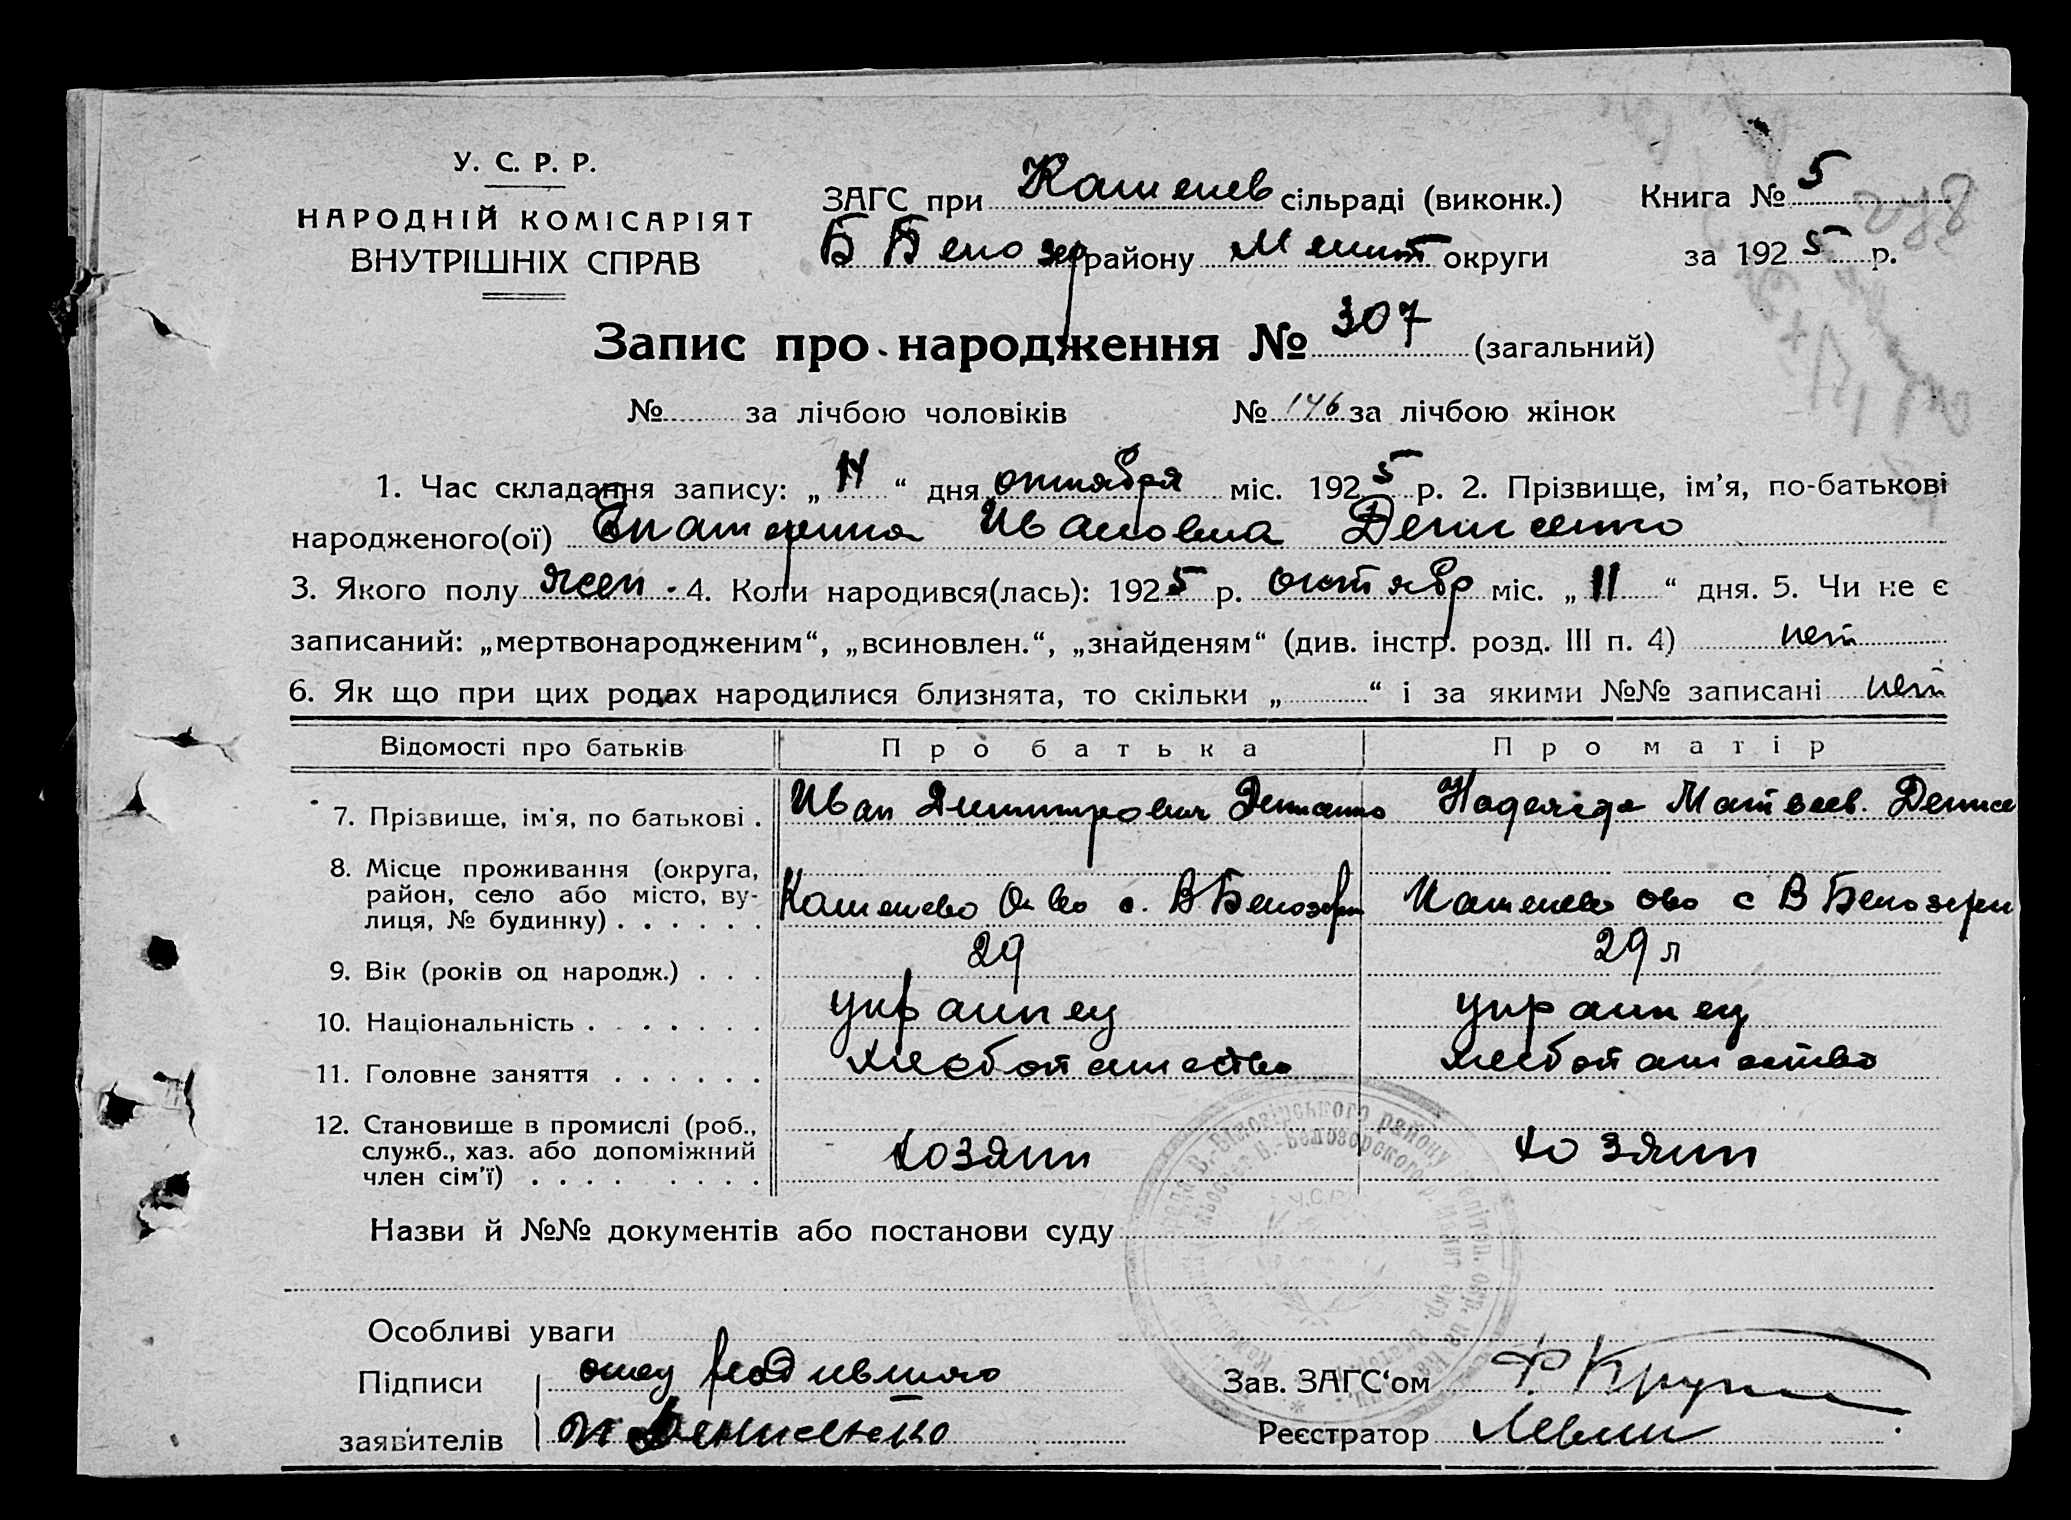 У. С. Р. Р.
НАРОДНІЙ КОМІСАРІЯТ
ВНУТРІШНІХ СПРАВ
ЗАГС при Каменев сільраді (виконк.)
Б Белозер району Мелит округи
Книга № 5
за 1925 р.
Запис про народження № 307 (загальний)
№ за лічбою чоловіків № 146 за лічбою жінок
1. Час складання запису: „ “ дня октября міс. 1925 р. 2. Прізвище, ім’я, по-батькові
народженого(ої) Екатерина Ивановна Денисенко
3. Якого полу жен. 4. Коли народився(лась): 1925 р. октябр міс. „11“ дня. 5. Чи не є
записаний: „мертвонародженим“, „всиновлен.“, „знайденям“ (див. інстр. розд. III п. 4) нет
6. Як що при цих родах народилися близнята, то скільки „ “ і за якими №№ записані нет
Відомості про батьків Про батька Про матір
7. Прізвище, ім’я, по батькові . Иван Димитрович Денисенко Надежда Матвеев. Денисе
8. Місце проживання (округа,
район, село або місто, ву-
лиця, № будинку) . . . . . . с. В Белозерк с В Белозерк
9. Вік (років од народж.) . . . 29 29 л
10. Національність . . . . . . . украинец украинец
11. Головне заняття . . . . . . хлебопашество хлебопашество
12. Становище в промислі (роб.,
служб., хаз. або допоміжний
член сім’ї) . . . . . . . . . хозяин хозяин
Назви й №№ документів або постанови суду
Особливі уваги
Підписи отец
заявителів Денисенко
Зав. ЗАГС‘ом
Реєстратор Левин